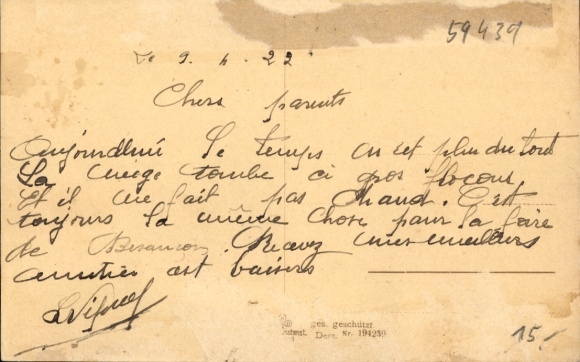 59439
Le 9. 4. 22
Chers parents
Aujourdhui le temps en est plus du tout
La neige tombe ci gros flocons
Et il ne fait pas chaud. C'est
toujours la même chose pour la foire
de Besançon. Recevez mes meilleurs
amitier est baisers
ges. geschützt
Dess. Nr. 194239
15.-